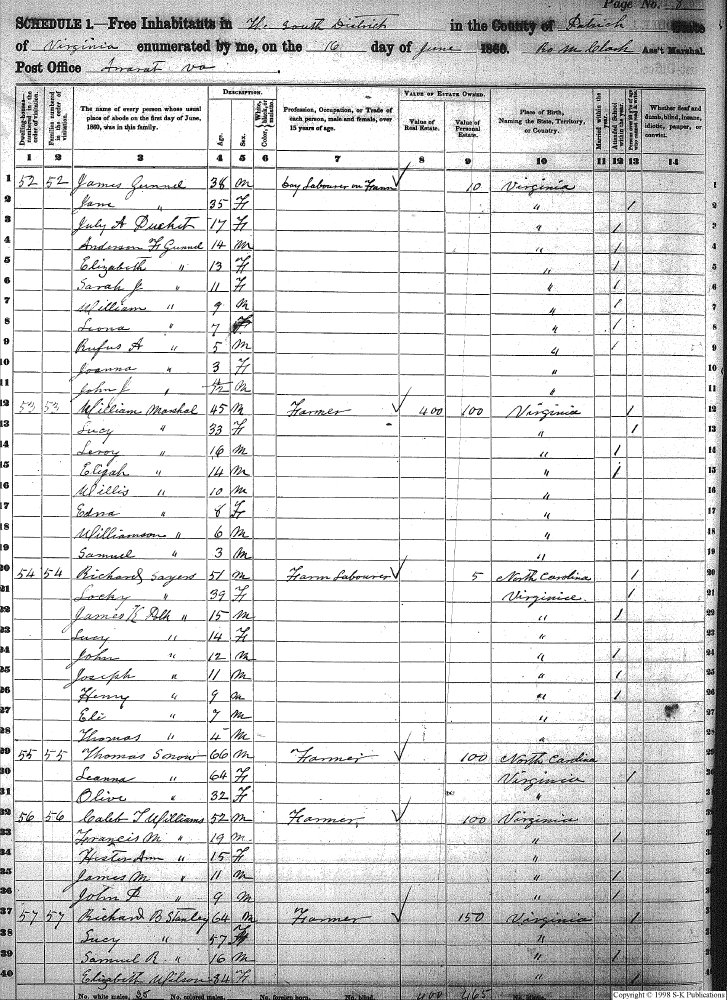 Page No. 8
SCHEDULE 1.—Free Inhabitants in The South District in the County of Patrick State
of Virginia enumerated by me, on the 16 day of June 1860. Ro M Clark Ass't Marshal.
Post Office Ararat Va
Dwelling-houses—numbered in the order of visitation.
Families numbered in the order of visitation.
The name of every person whose usual place of abode on the first day of June, 1860, was in this family.
DESCRIPTION.
Age.
Sex.
Color, White, black, or mulatto.
Profession, Occupation, or Trade of each person, male and female, over 15 years of age.
VALUE OF ESTATE OWNED.
Value of Real Estate.
Value of Personal Estate.
Place of Birth, Naming the State, Territory, or Country.
Married within the year.
Attended School within the year.
Whether deaf and dumb, blind, insane, idiotic, pauper, or convict.
1 2 3 4 5 6 7 8 9 10 11 12 13 14
1 52 52 James Gunnel 38 M Day Labourer on Farm ✓ 10 Virginia
2 Jane " 35 F " /
3 July A Puckit 17 F " /
4 Anderson F Gunnel 14 M " /
5 Elizabeth " 13 F " /
6 Sarah J " 11 F " /
7 William " 9 M " /
8 Leona " 7 F " /
9 Rufus A " 5 M " /
10 Joanna " 3 F "
11 John J " 4/12 M "
12 53 53 William Marshal 45 M Farmer ✓ 400 100 Virginia /
13 Lucy " 33 F " /
14 Leroy " 16 M " /
15 Elijah " 14 M " /
16 Willis " 10 M "
17 Edna " 8 F "
18 Williamson " 6 M "
19 Samuel " 3 M "
20 54 54 Richard Sayers 51 M Farm Labourer ✓ 5 North Carolina /
21 Locky " 39 F Virginia /
22 James K Polk " 15 M " /
23 Lucy " 14 F "
24 John " 12 M " /
25 Joseph " 11 M " /
26 Henry " 9 M " /
27 Eli " 7 M "
28 Thomas " 4 M "
29 55 55 Thomas Snow 66 M Farmer ✓ 100 North Carolina
30 Leanna " 64 F Virginia /
31 Olive " 32 F "
32 56 56 Caleb T Williams 52 M Farmer ✓ 100 Virginia
33 Francis M " 19 M " /
34 Hester Ann " 15 F "
35 James M " 11 M " /
36 John P " 9 M " /
37 57 57 Richard B Stanley 64 M Farmer ✓ 150 Virginia /
38 Lucy " 57 F "
39 Samuel R " 16 M " /
40 Elizabeth Wilson 34 F " /
No. white males, 25 No. colored males, No. foreign born, No. blind, 400 465
Copyright © 1998 S-K Publications